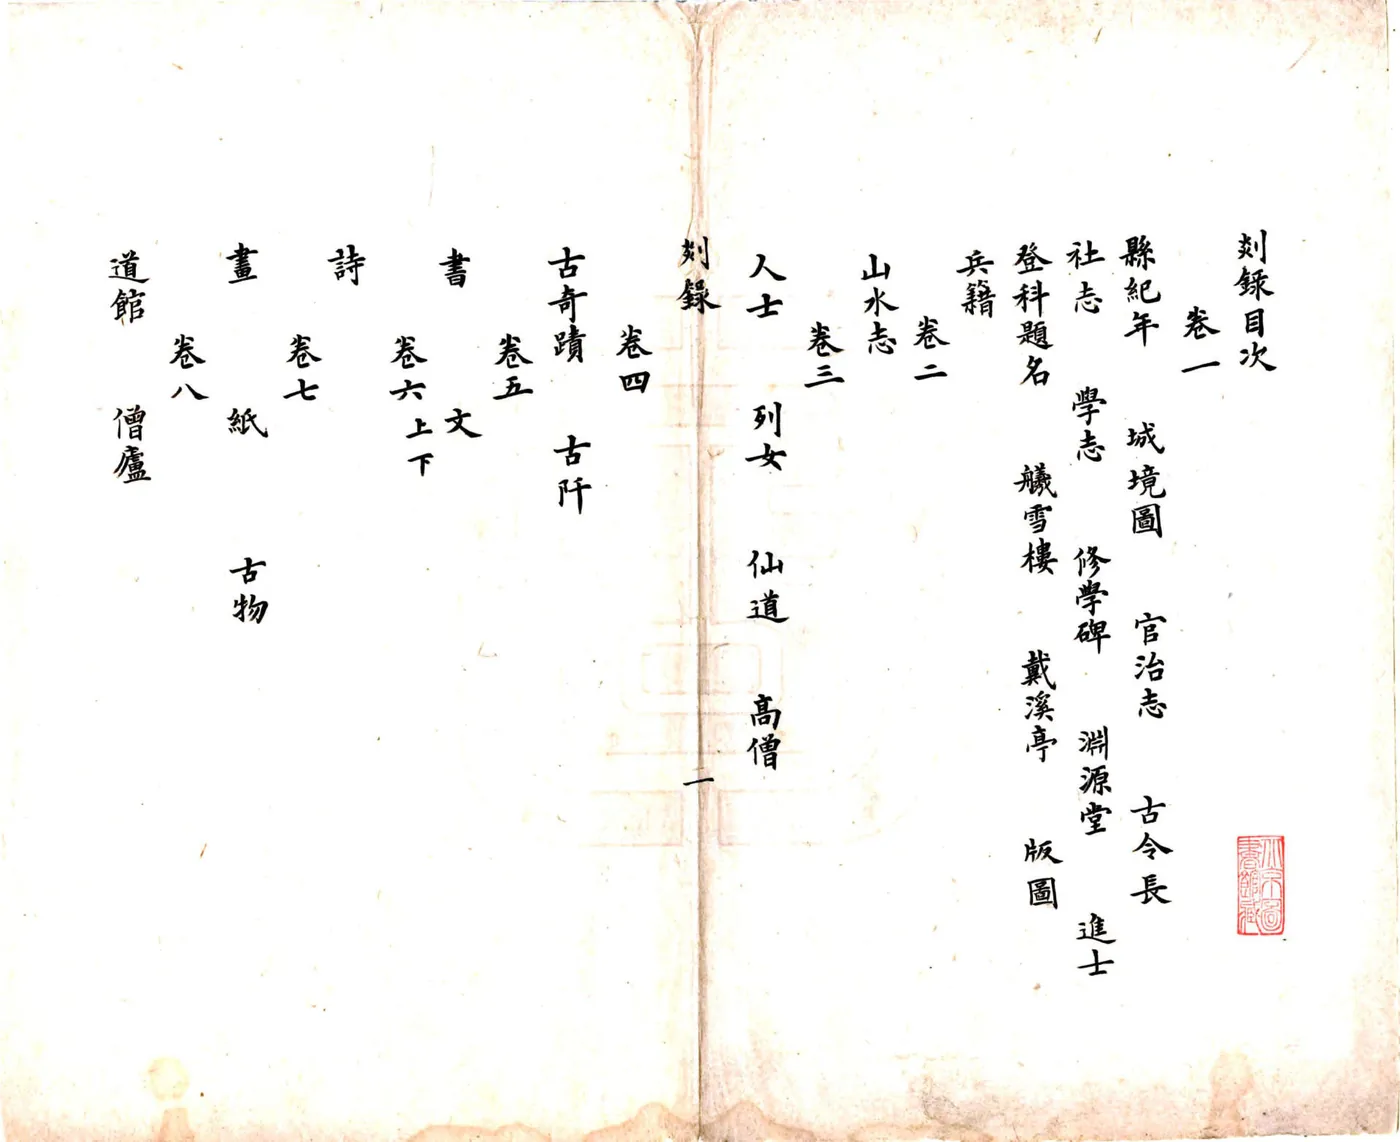 剡錄目次
卷一
縣紀年 城境圖 官治志 古令長
社志 學志 修學碑 淵源堂 進士
登科題名 艤雪樓 戴溪亭 版圖
兵籍
卷二
山水志
卷三
人士 列女 仙道 高僧
剡錄 一
卷四
古奇蹟 古阡
卷五
書 文
卷六上下
詩
卷七
畫 紙 古物
卷八
道館 僧廬